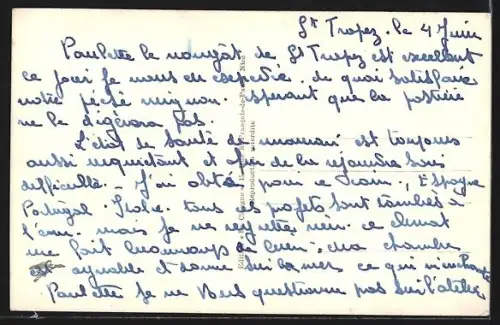 St Tropez, le 4 Juin
Paulette le nougat de St Tropez est excellent
ce jour je vous en expédie. de quoi satisfaire
notre péché mignon. espérant que la postière
ne le digérera pas.
L'état de santé de maman est toujours
aussi inquiétant et afin de la rejoindre sans
difficulté. J'ai opté pour ce coin, Espagne
Portugal Italie tous ces projets sont tombés à
l'eau. mais je ne regrette rien. ce climat
me fait beaucoup de bien, ma chambre
agréable et donne sur la mer ce qui m'enchante
Paulette je ne vous questionne pas sur l'atelier